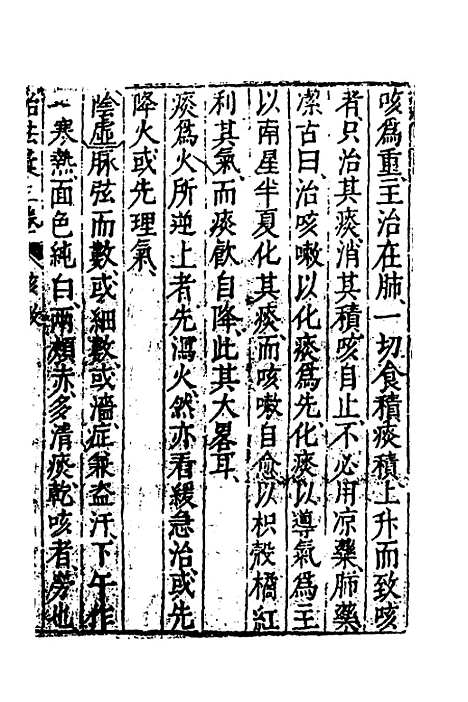 咳爲重主治在肺一切食積痰積上升而致咳
者只治其痰消其積咳自止不必用凉藥肺藥
潔古曰治咳嗽以化痰爲先化痰以導氣爲主
以南星半夏化其痰而咳嗽自愈以枳殼橘紅
利其氣而痰飲自降此其大畧耳
痰爲火所逆上者先瀉火然亦看緩急治或先
降火或先理氣
陰虛脉弦而數或細數或濇症兼盗汗下午作
寒熱面色純白兩頰赤多清痰乾咳者勞也
治法彙三卷 咳嗽